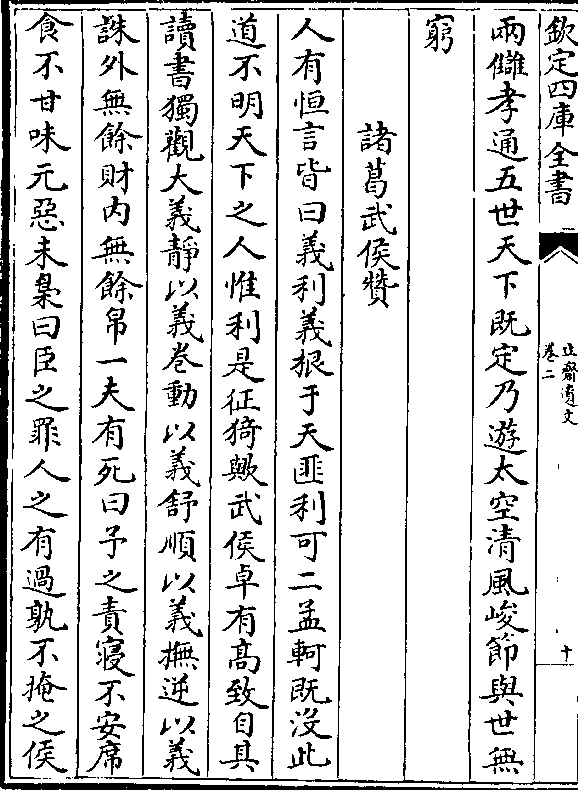 欽定四庫全書
止齋遺文
卷二
十
兩讎孝通五世天下既定乃遊太空清風峻節與世無
窮
諸葛武侯贊
人有恒言皆曰義利義根于天匪利可二孟軻既沒此
道不明天下之人惟利是征猗歟武侯卓有髙致自其
讀書獨觀大義靜以義卷動以義舒順以義撫逆以義
誅外無餘財内無餘帛一夫有死曰予之責寢不安席
食不甘味元惡未梟曰臣之罪人之有過孰不掩之侯